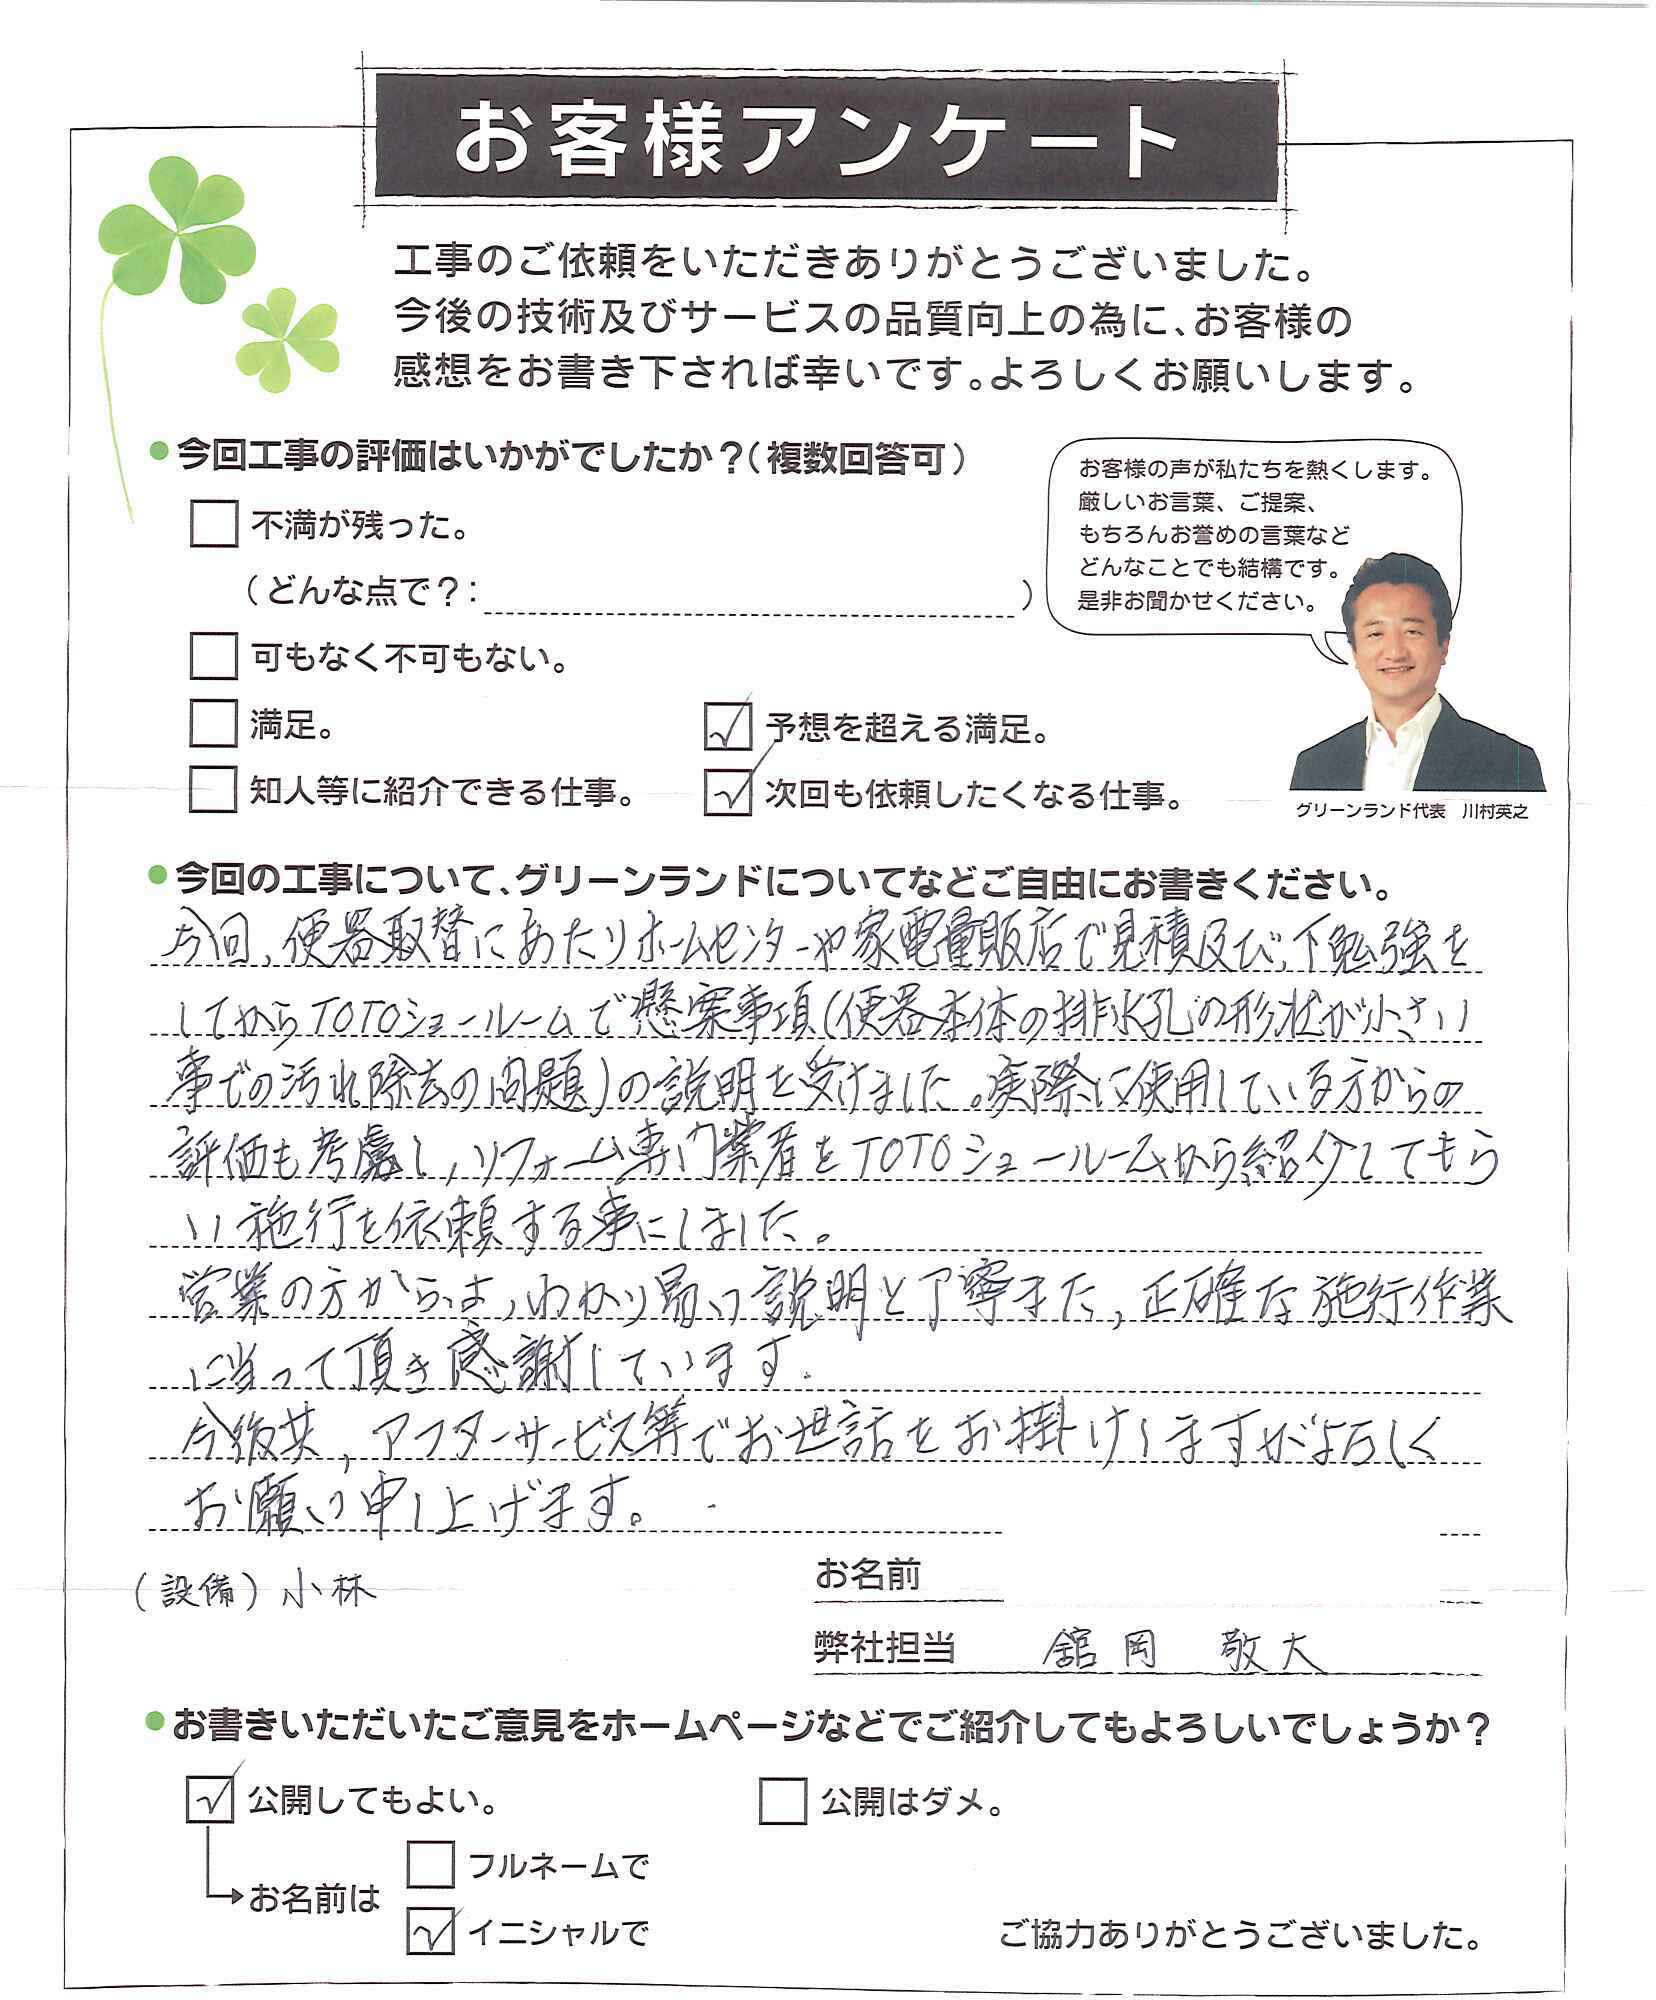 お客様アンケート
工事のご依頼をいただきありがとうございました。
今後の技術及びサービスの品質向上の為に、お客様の
感想をお書き下されば幸いです。よろしくお願いします。
●今回工事の評価はいかがでしたか？（複数回答可）
不満が残った。
（どんな点で？：　）
可もなく不可もない。
満足。
予想を超える満足。
知人等に紹介できる仕事。
次回も依頼したくなる仕事。
お客様の声が私たちを熱くします。
厳しいお言葉、ご提案、
もちろんお誉めの言葉など
どんなことでも結構です。
是非お聞かせください。
グリーンランド代表　川村英之
●今回の工事について、グリーンランドについてなどご自由にお書きください。
今回、便器取替にあたりホームセンターや家電量販店で見積及び、下勉強を
してからTOTOショールームで懸案事項(便器本体の排水孔の形状が小さい
事での汚れ除去の問題)の説明を受けました。実際に使用している方からの
評価も考慮し、リフォーム専門業者をTOTOショールームから紹介してもら
い施行を依頼する事にしました。
営業の方からは、わかり易い説明と丁寧また、正確な施行作業
に当って頂き感謝しています.
今後共、アフターサービス等でお世話をお掛けしますがよろしく
お願い申し上げます。
(設備) 小林
お名前
弊社担当　舘岡　敬大
●お書きいただいたご意見をホームページなどでご紹介してもよろしいでしょうか？
公開してもよい。
公開はダメ。
お名前は
フルネームで
イニシャルで
ご協力ありがとうございました。